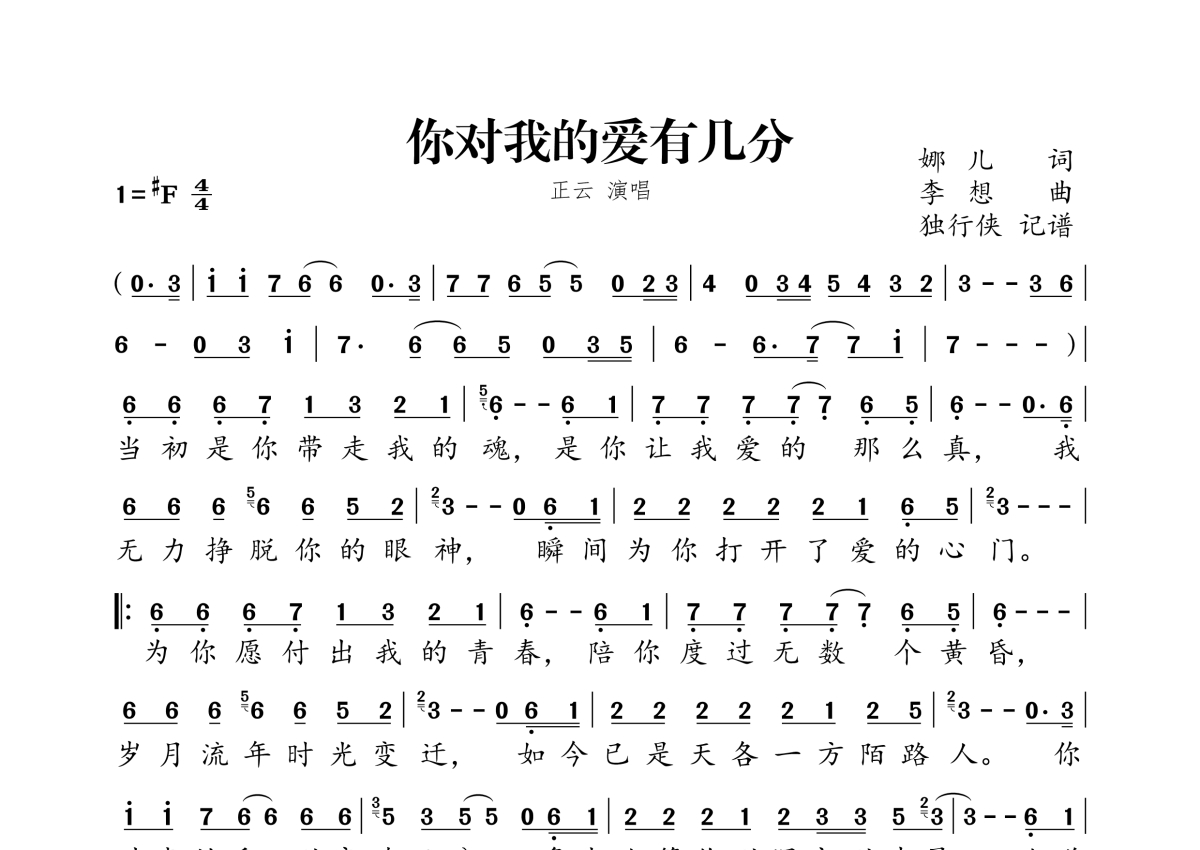 你对我的爱有几分
正云 演唱
娜儿 词
李想 曲
独行侠 记谱
1=♯F 4/4
(0· 3 | i i 7 6 6 0· 3 | 7 7 6 5 5 0 2 3 | 4 0 3 4 5 4 3 2 | 3 - - 3 6 |
6 - 0 3 i | 7· 6 6 5 0 3 5 | 6 - 6· 7 7 i | 7 - - - ) |
6 6 6 7 1 3 2 1 | 5 6 - - 6 1 | 7 7 7 7 7 6 5 | 6 - - 0· 6 |
当初是你带走我的魂，是你让我爱的 那么真， 我
6 6 6 5 6 6 5 2 | 2 3 - - 0 6 1 | 2 2 2 2 2 1 6 5 | 2 3 - - - |
无力挣脱你的眼神， 瞬间为你打开了爱的心门。
‖: 6 6 6 7 1 3 2 1 | 6 - - 6 1 | 7 7 7 7 7 6 5 | 6 - - - |
为你愿付出我的青春，陪你度过无数 个黄昏，
6 6 6 5 6 6 5 2 | 2 3 - - 0 6 1 | 2 2 2 2 2 1 2 5 | 2 3 - - 0· 3 |
岁月流年时光变迁， 如今已是天各一方陌路人。 你
i i 7 6 6 6 6 | 3 5 3 5 5 0 6 1 | 2 2 2 1 2 3 3 5 2 3 | 3 - - 6 1 |